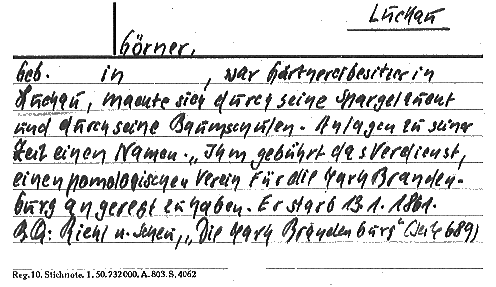 Luckau
Görner,
geb. in , war Gärtnereibesitzer in
Luckau, machte sich durch seine Spargelzucht
und durch seine Baumschulen-Anlagen zu seiner
Zeit einen Namen. „Ihm gebührt das Verdienst,
einen pomologischen Verein für die Mark Branden-
burg angeregt zu haben. Er starb 13.1.1861.
B.Q: Riehl u. Scheu, „Die Mark Brandenburg" (Seite 689)
Reg. 10. Stichnote. 1. 50. 732000. A. 803. S. 4062